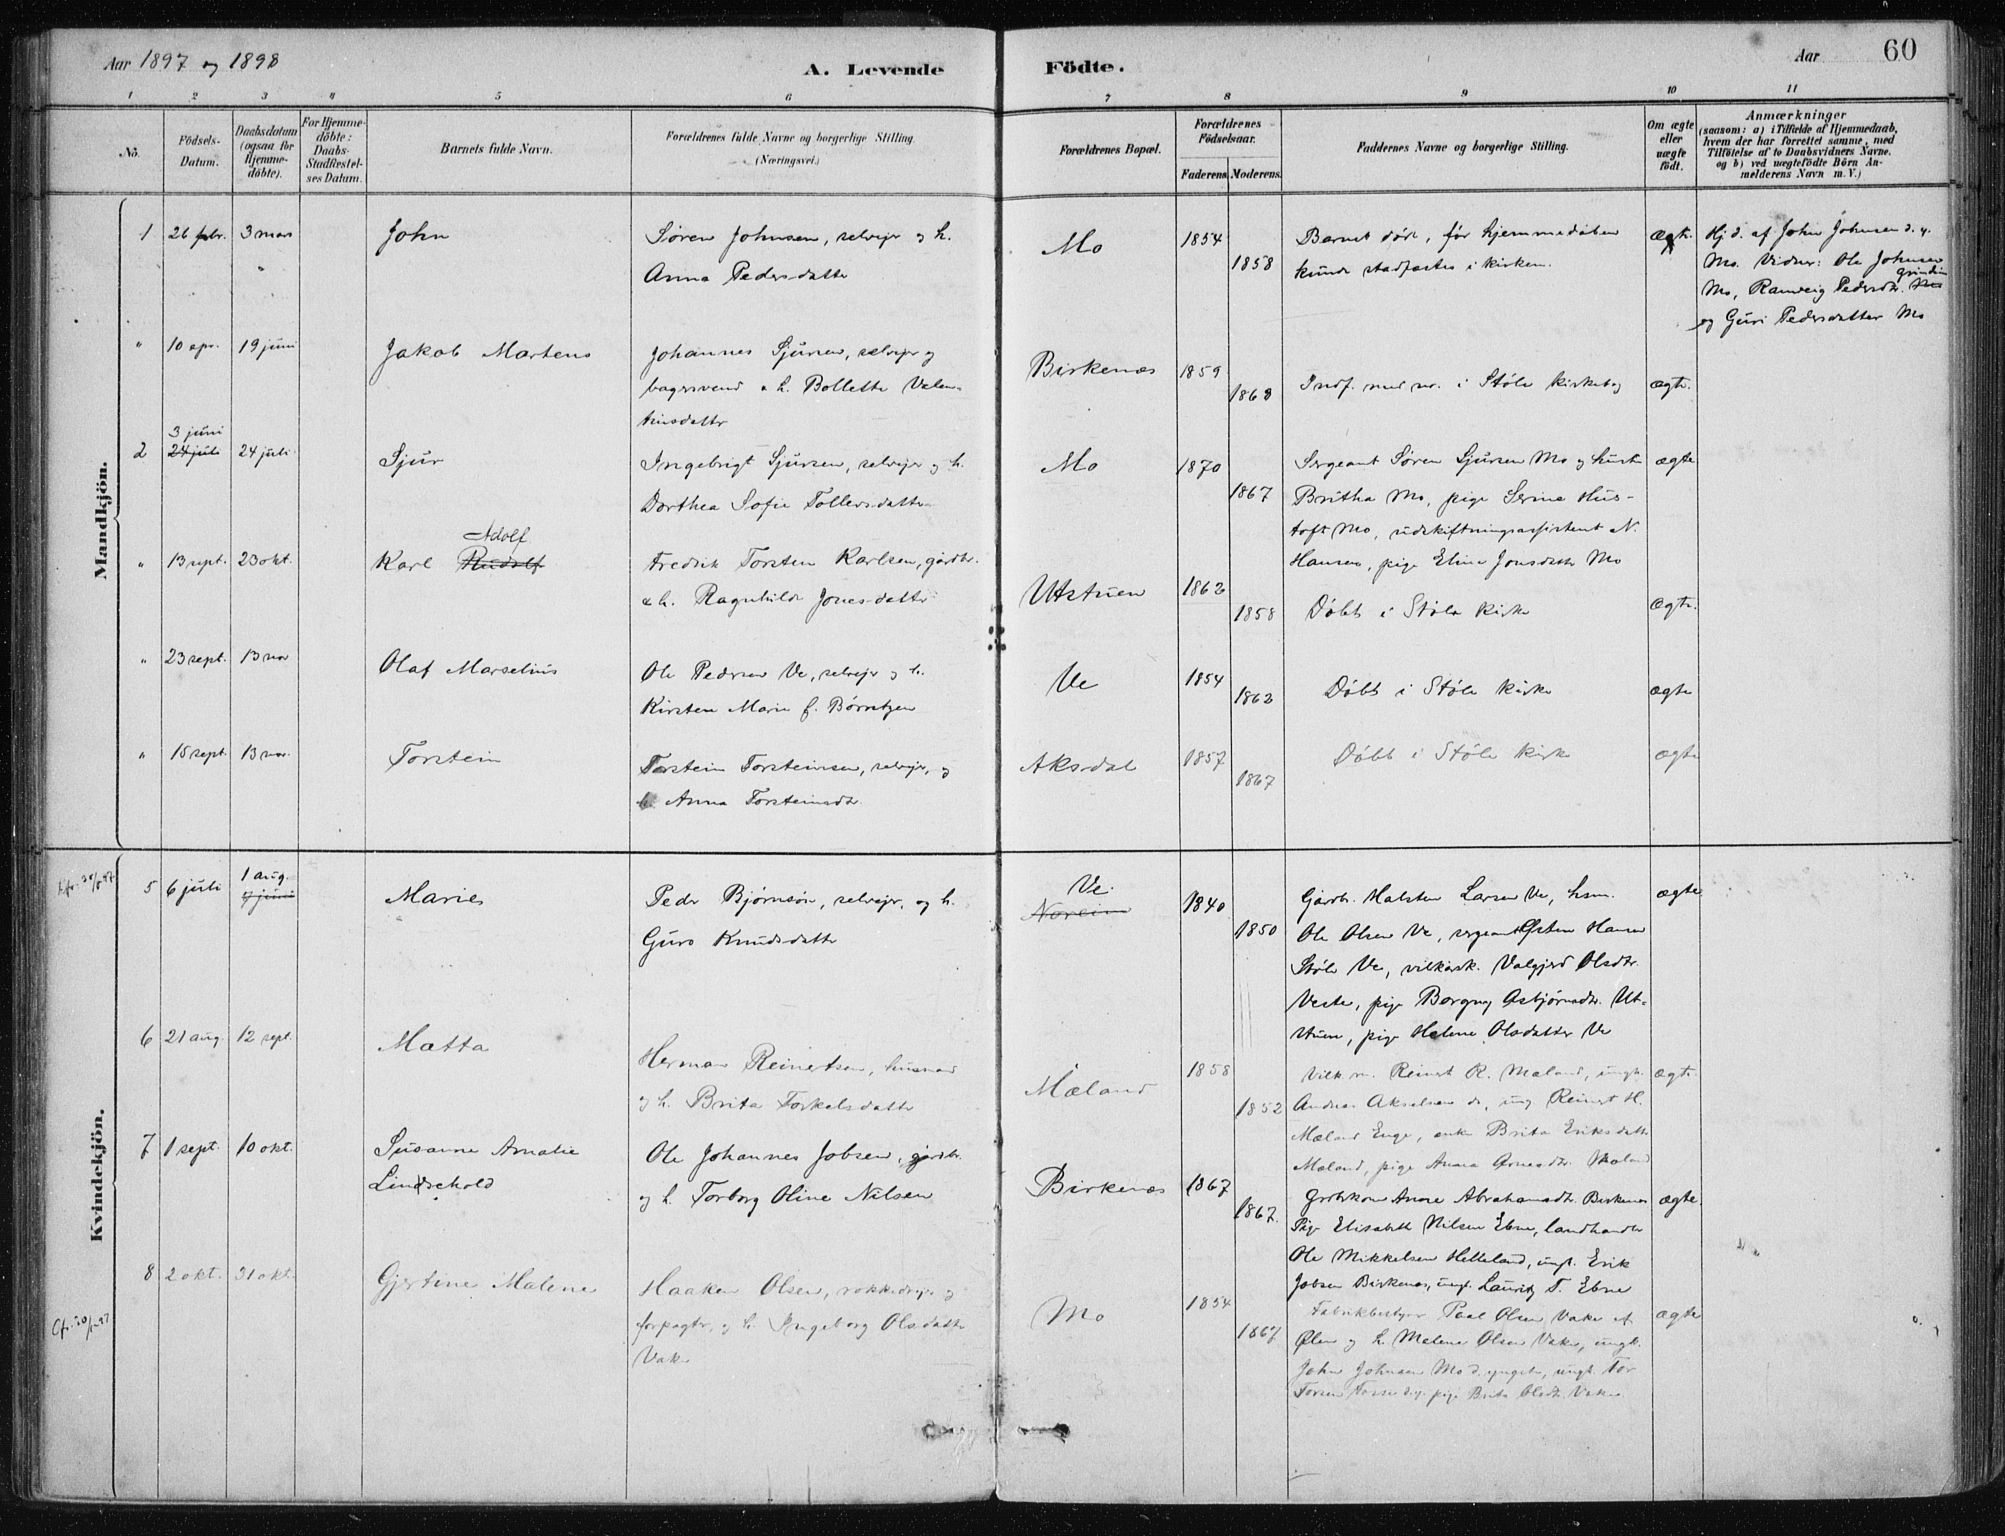 Aar 1897 og 1898
A. Levende Födte.
Aar
60
1 2 3 4 5 6 7 8 9 10 11
No.
Födsels-
Datum.
Daabsdatum
(ogsaa for
Hjemme-
döbte).
For Hjemme-
döbte:
Daabs-
Stadfæstel-
ses Datum.
Barnets fulde Navn.
Forældrenes fulde Navne og borgerlige Stilling.
(Næringsvei.)
Forældrenes Bopæl.
Forældrenes
Födselsaar.
Faderens. Moderens.
Faddernes Navne og borgerlige Stilling.
Om ægte
eller
uægte
födt.
Anmærkninger
(saasom: a) i Tilfælde af Hjemmedaab,
hvem der har forrettet samme, med
Tilföielse af to Daabsvidners Navne.
og b) ved uægtefödte Börn An-
melderens Navn m. V.)
Mandkjön.
1 26 febr. 3 mars
John
Søren Johnsen, selvejer og h.
Anna Pedersdatter
Mo
1854
1858
Barnet døde, før hjemmedåben
kunde stadfæstes i kirken.
ægte.
Hj. d. af John Johnsen d. y.
Mo. Vidner: Ole Johnsen
Mo, Ranveig Pedersdtr.
og Guri Pedersdatter Mo
" 10 apr. 19 juni
Jakob Martens
Johannes Sjursen, selvejer og
bagersvend & h. Bollette Valen-
tinsdatter
Birkenæs
1859
1868
Indf. med nr. i Støle kirkebog
ægte.
3 juni
2 24 juli 24 juli
Sjur
Ingebrigt Sjursen, selvejer og h.
Dorthea Sofie Tollersdatter
Mo
1870
1867
Sergeant Søren Sjursen Mo og hustr
Britha Mo, pige Serine Hus-
toft Mo, udskiftningsassistent N.
Hansen, pige Eline Jonsdatter Mo
ægte
" 13 sept. 23 okt.
Adolf
Karl Rudolf
Fredrik Torsten Karlsen, gårdbr.
& h. Ragnhilde Jonesdatter
Utstuen
1862
1858
Døbt i Støle kirke
ægte.
" 23 sept. 13 nov
Olaf Marselius
Ole Pedersen Ve, selvejer og h.
Kirsten Marie f. Børretzen
Ve
1854
1862
Døbt i Støle kirke
ægte
" 15 sept. 13 nov.
Torstein
Torstein Torsteinsen, selvejer, og
h. Anna Torsteinsdtr.
Aksdal
1857
1867
Døbt i Støle kirke
ægte
Kvindekjön.
1 aug.
5 6 juli
Marie
Peder Bjørnsøn, selvejer, og h.
Guro Knudsdatter
Ve.
Noreim
1840
1850
Gårdb. Halsten Larsen Ve, hsm.
Ole Olsen Ve, sergeant Østen Hansen
Støle Ve, vilkårsk. Valgjerd Olsdtr.
Veste, pige Borgny Asbjørnsdtr. Ut-
stuen, pige Helene Olsdatter Ve
ægte
6 21 aug. 12 sept.
Matta
Herman Reinertsen, husmand
og h. Brita Torkelsdatter
Mæland
1858
1852
Vilk. m. Reinert R. Mæland, ungk.
Andreas Akselsen ds, ung Reinert H.
Mæland Enge, enke Brita Eriksdatter
Mæland, pige Anna Arnesdtr. Mæland
ægte.
7 1 sept. 10 okt.
Susanne Amalie
Lindschold
Ole Johannes Jobsen, gårdbr.
og h. Torborg Oline Nilsen
Birkenæs
1867
1867.
Grdbrkone Anne Abrahamsdtr. Birkenæs
Pige Elisabeth Nilsen Ebne, landhandler
Ole Mikkelsen Helleland, ungk. Erik
Jobsen Birkenæs, ungk. Lauritz T. Ebne
ægte.
8 2 okt. 31 okt.
Gjertine Malene
Haaken Olsen, rokkedrejer og
forpagter, og h. Ingeborg Olsdatter
Vake
Mo
1854
1867
Fabrikbestyrer Paul Olsen Vake af
Ølen og h. Malene Olsen Vake, ungk.
John Johnsen Mo d. yngste, ungk. Tor
Torsen Fosse, pige Brita Olsdtr. Vake
ægte